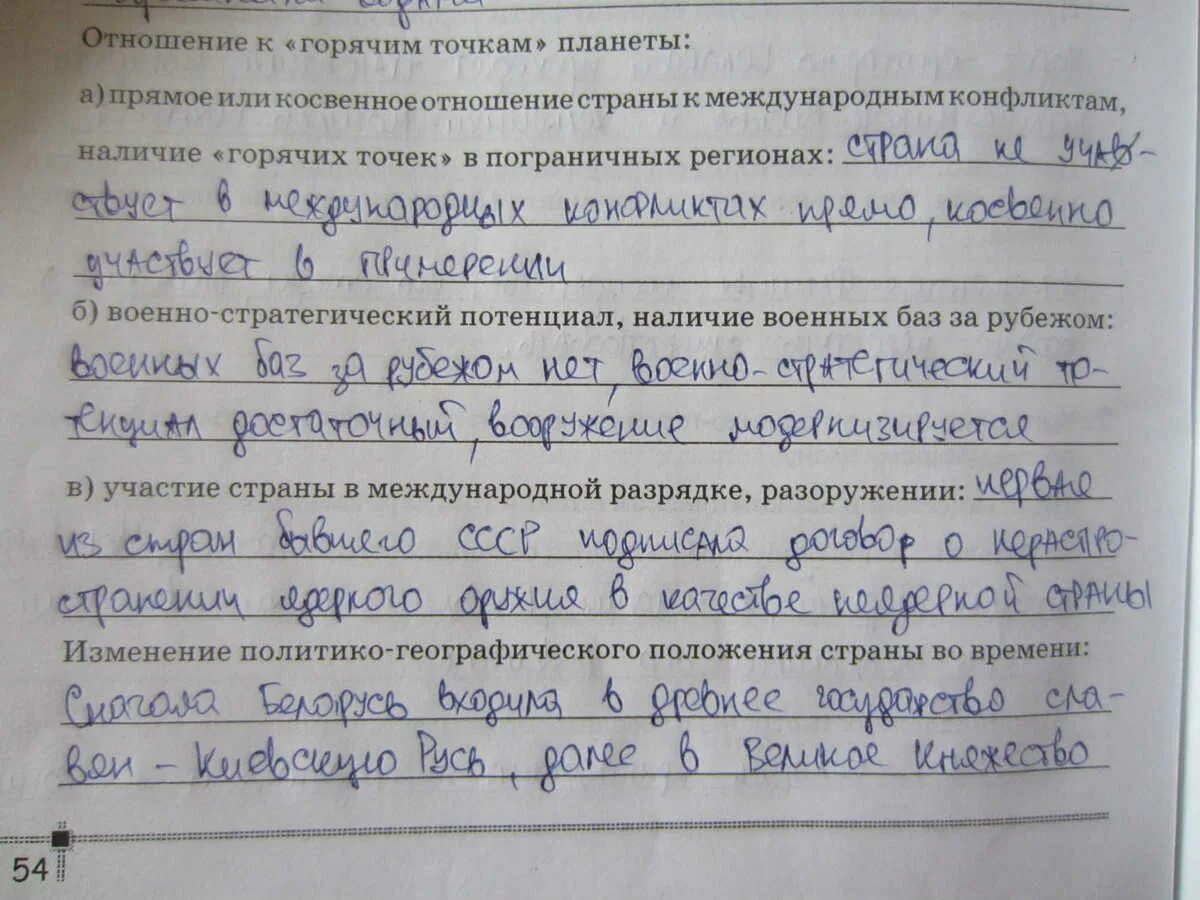 Отношение к «горячим точкам» планеты:
а) прямое или косвенное отношение страны к международным конфликтам,
наличие «горячих точек» в пограничных регионах: страна не учав-
ствует в международных конфликтах прямо, косвенно
участвует в примерении
б) военно-стратегический потенциал, наличие военных баз за рубежом:
военных баз за рубежом нет, военно-стратегический по-
тенциал достаточный, вооружение модернизируется
в) участие страны в международной разрядке, разоружении: первая
из стран бывшего СССР подписала договор о нераспро-
странении ядерного оружия в качестве неядерной страны
Изменение политико-географического положения страны во времени:
Сначала Белорусь входила в древнее государство сла-
вян - Киевскую Русь, далее в Великое Княжество
54